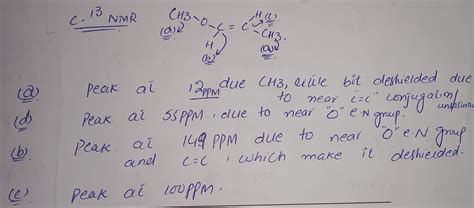 C-13 NMR
CH3-O-C=C
H(c)
(d)
CH3.
H
(b)
(a)
(a) Peak at 12ppm due CH3, little bit deshielded due
to near "C=C" conjugation/
(d) Peak at 55PPM, due to near "O" e.N group.
(b) Peak at 149 PPM due to near "O" e.N group
and C=C, which make it deshielded.
(c) Peak at 100PPM.